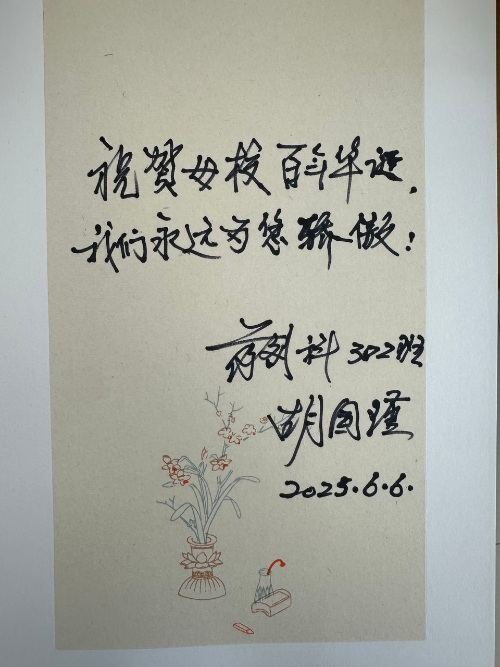 祝贺母校百年华诞,
我们永远为您骄傲!
药剂科302班
胡国瑾
2025.6.6.